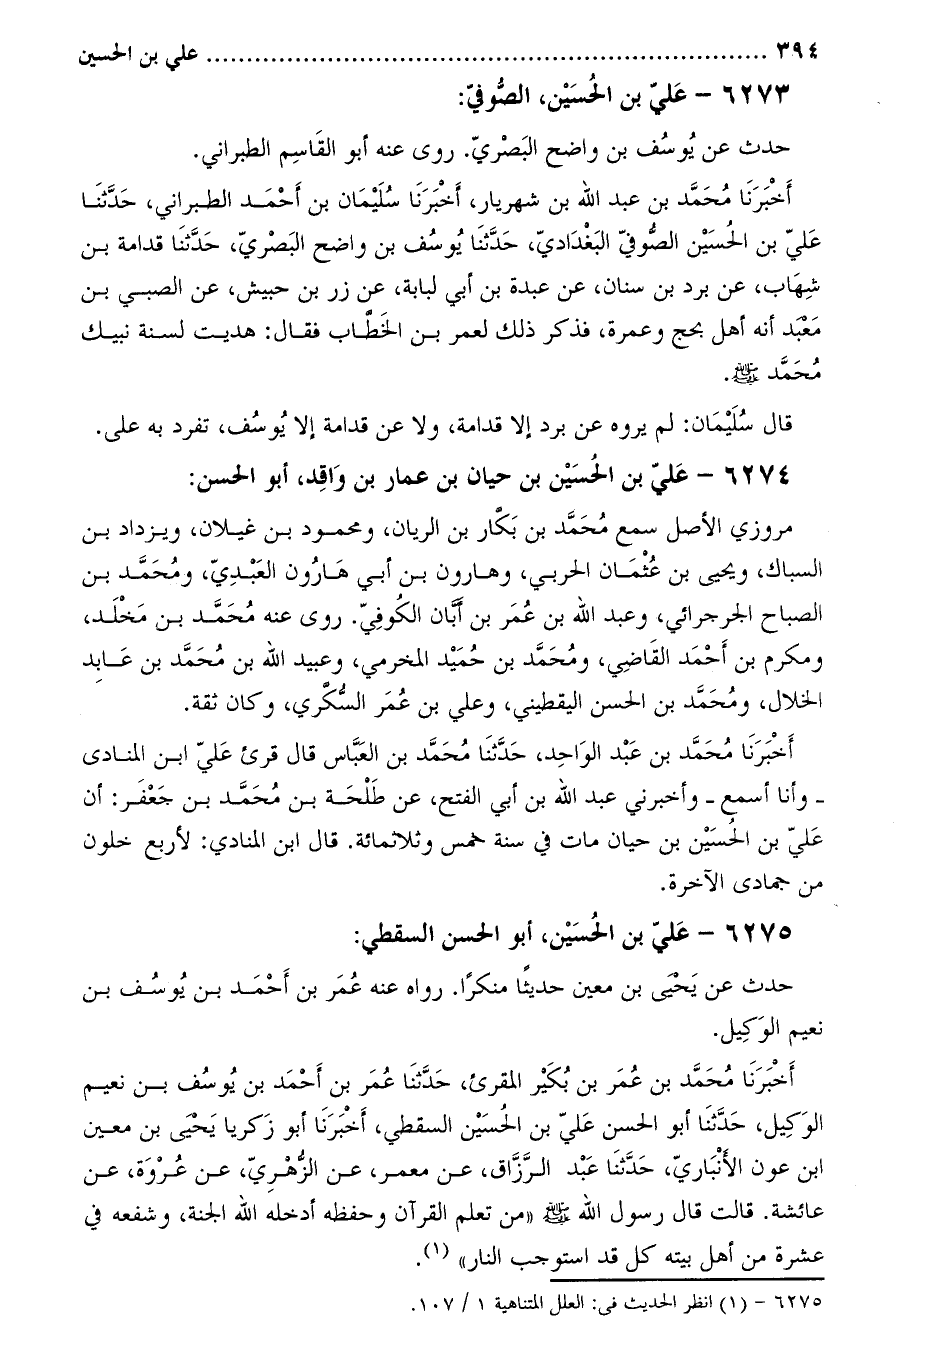 ٣٩٤ ........................................................................ علي بن الحسين
٦٢٧٣ – عَليّ بن الحُسَيْن، الصُّوفيّ:
حدث عن يُوسُف بن واضح البَصْريّ. روى عنه أبو القَاسِم الطبراني.
أَخْبَرَنَا مُحَمَّد بن عبد الله بن شهريار، أَخْبَرَنَا سُلَيْمان بن أَحْمَد الطبراني، حَدَّثَنَا
عَليّ بن الحُسَيْن الصُّوفيّ البَغْدَاديّ، حَدَّثَنَا يُوسُف بن واضح البَصْريّ، حَدَّثَنَا قدامة بن
شِهَاب، عن برد بن سنان، عن عبدة بن أبي لبابة، عن زر بن حبيش، عن الصبي بن
مَعْبَد أنه أهل بحج وعمرة، فذكر ذلك لعمر بن الخَطَّاب فقال: هديت لسنة نبيك
مُحَمَّد ﷺ.
قال سُلَيْمَان: لم يروه عن برد إلا قدامة، ولا عن قدامة إلا يُوسُف، تفرد به على.
٦٢٧٤ – عَليّ بن الحُسَيْن بن حيان بن عمار بن وَاقِد، أبو الحسن:
مروزي الأصل سمع مُحَمَّد بن بَكَّار بن الريان، ومحمود بن غيلان، ويزداد بن
السباك، ويحيى بن عُثْمَان الحربي، وهارون بن أبي هَارُون العَبْديّ، ومُحَمَّد بن
الصباح الجرجرائي، وعبد الله بن عُمَر بن أَبَّان الكُوفيّ. روى عنه مُحَمَّد بن مَخْلَد،
ومكرم بن أَحْمَد القَاضِي، ومُحَمَّد بن حُمَيْد المخرمي، وعبيد الله بن مُحَمَّد بن عَابد
الخلال، ومُحَمَّد بن الحسن اليقطيني، وعلي بن عُمَر السُّكَّري، وكان ثقة.
أَخْبَرَنَا مُحَمَّد بن عَبْد الوَاحِد، حَدَّثَنَا مُحَمَّد بن العَبَّاس قال قرئ عَليّ ابن المنادى
ـ وأنا أسمع ـ وأخبرني عبد الله بن أبي الفتح، عن طَلْحَة بن مُحَمَّد بن جَعْفَر: أن
عَليّ بن الحُسَيْن بن حيان مات في سنة خمس وثلاثمائة. قال ابن المنادي: لأربع خلون
من جمادى الآخرة.
٦٢٧٥ – عَليّ بن الحُسَيْن، أبو الحسن السقطي:
حدث عن يَحْيَى بن معين حديثًا منكرًا. رواه عنه عُمَر بن أَحْمَد بن يُوسُف بن
نعيم الوَكِيل.
أَخْبَرَنَا مُحَمَّد بن عُمَر بن بُكَيْر المقرئ، حَدَّثَنَا عُمَر بن أَحْمَد بن يُوسُف بن نعيم
الوَكِيل، حَدَّثَنَا أبو الحسن عَليّ بن الحُسَيْن السقطي، أَخْبَرَنَا أبو زَكريا يَحْيَى بن معين
ابن عون الأَنْبَاريّ، حَدَّثَنَا عَبْد الرَّزَّاق، عن معمر، عن الزُّهْريّ، عن عُرْوَة، عن
عائشة. قالت قال رسول الله ﷺ «من تعلم القرآن وحفظه أدخله الله الجنة، وشفعه في
عشرة من أهل بيته كل قد استوجب النار» (١).
٦٢٧٥ – (١) انظر الحديث فى: العلل المتناهية ١ / ١٠٧.